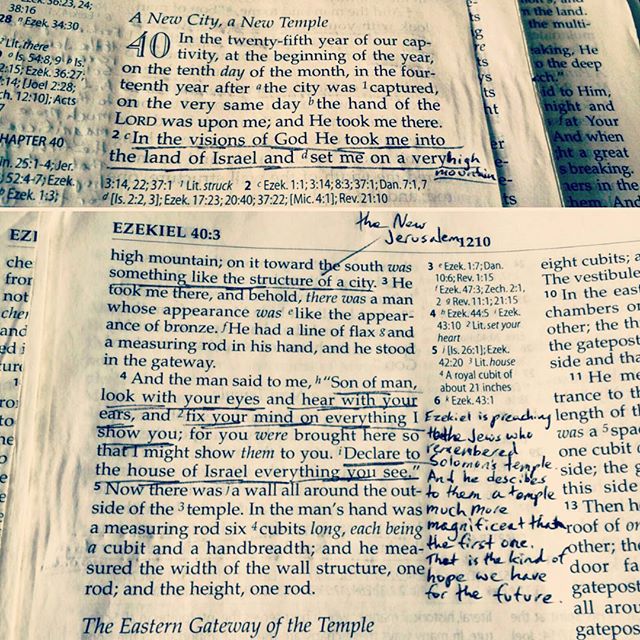 38:16
28 n Ezek. 34:30
2 Lit. there
o Is. 54:8, 9 p Is.
2:15; Ezek. 36:27;
:14; [Joel 2:28;
ch. 12:10]; Acts
HAPTER 40
2 Kin. 25:1-4; Jer.
52:4-7; Ezek.
Ezek. 1:3;
A New City, a New Temple
40 In the twenty-fifth year of our cap-
tivity, at the beginning of the year,
on the tenth day of the month, in the four-
teenth year after a the city was 1 captured,
on the very same day b the hand of the
LORD was upon me; and He took me there.
2 c In the visions of God He took me into
the land of Israel and d set me on a very high
mountain
3:14, 22; 37:1 1 Lit. struck 2 c Ezek. 1:1; 3:14; 8:3; 37:1; Dan. 7:1, 7
d [Is. 2:2, 3]; Ezek. 17:23; 20:40; 37:22; [Mic. 4:1]; Rev. 21:10
n the land.
the multi-
aking, He
o the deep
ch."
id to Him,
night and
fat Your
And when
ht a great
s breaking.
ners in the
hem, And
EZEKIEL 40:3
the New
Jerusalem
1210
high mountain; on it toward the south was
something like the structure of a city. 3 He
took me there, and behold, there was a man
whose appearance was e like the appear-
ance of bronze. f He had a line of flax g and
a measuring rod in his hand, and he stood
in the gateway.
4 And the man said to me, h "Son of man,
look with your eyes and hear with your
ears, and 2 fix your mind on everything I
show you; for you were brought here so
that I might show them to you. i Declare to
the house of Israel everything you see."
5 Now there was j a wall all around the out-
side of the 3 temple. In the man's hand was
a measuring rod six 4 cubits long, each being
a cubit and a handbreadth; and he mea-
sured the width of the wall structure, one
rod; and the height, one rod.
The Eastern Gateway of the Temple
3 e Ezek. 1:7; Dan.
10:6; Rev. 1:15
f Ezek. 47:3; Zech. 2:1,
2 g Rev. 11:1; 21:15
4 h Ezek. 44:5 i Ezek.
43:10 2 Lit. set your
heart
5 j [Is. 26:1]; Ezek.
42:20 3 Lit. house
4 A royal cubit of
about 21 inches
6 k Ezek. 43:1
Ezekiel is preaching
to the Jews who
remembered
Solomon's temple.
And he descibes
to them a temple
much more
magnificent than
the first one.
That is the kind of
hope we have
for the future.
eight cubits; a
The vestibule
10 In the east
chambers on
other; the th
the gatepost
side and tha
11 He me
trance to t
length of t
was a 5 spa
one cubit
side; the
this side
13 Then h
roof of on
other; the
door fa
gatepos
all arou
gatepos